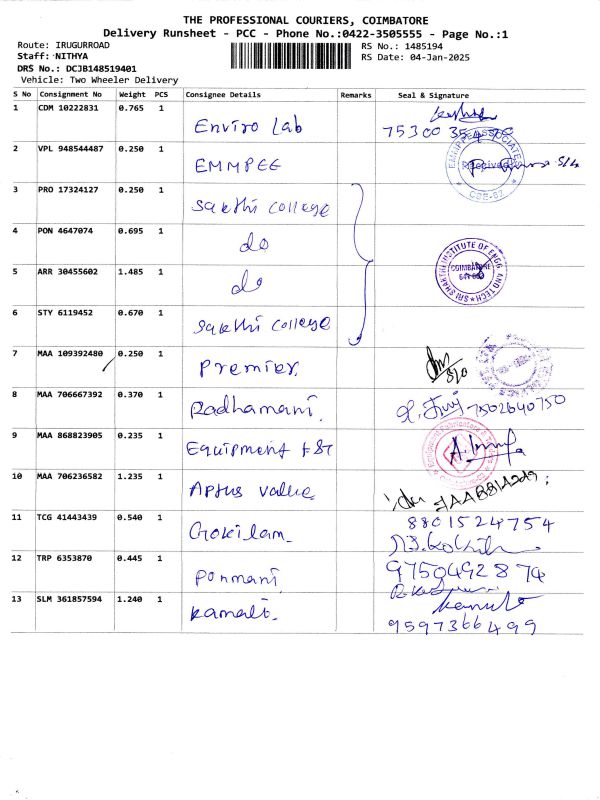 THE PROFESSIONAL COURIERS, COIMBATORE
Delivery Runsheet - PCC - Phone No.:0422-3505555 - Page No.:1
Route: IRUGURROAD RS No.: 1485194
Staff: NITHYA RS Date: 04-Jan-2025
DRS No.: DCJB148519401
Vehicle: Two Wheeler Delivery
S No Consignment No Weight PCS Consignee Details Remarks Seal & Signature
1 CDM 10222831 0.765 1 Enviro Lab
2 VPL 948544487 0.250 1 EMMPEE
3 PRO 17324127 0.250 1 Sakthi College
4 PON 4647074 0.695 1 do
5 ARR 30455602 1.485 1 do
SRI SHAKTHI INSTITUTE OF ENGG AND TECH COIMBATORE
6 STY 6119452 0.670 1 Sakthi College
7 MAA 109392480 0.250 1 Premier
8 MAA 706667392 0.370 1 Radhamani 7502640750
9 MAA 868823905 0.235 1 Equipment
10 MAA 706236582 1.235 1 Aptus Value
11 TCG 41443439 0.540 1 Gokilam 8801524754
12 TRP 6353870 0.445 1 Ponmani 9750492874
13 SLM 361857594 1.240 1 Kamali 9597366499